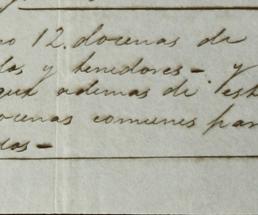 12. docenas de
y tenedores - y
ademas de est
ocenas comunes par